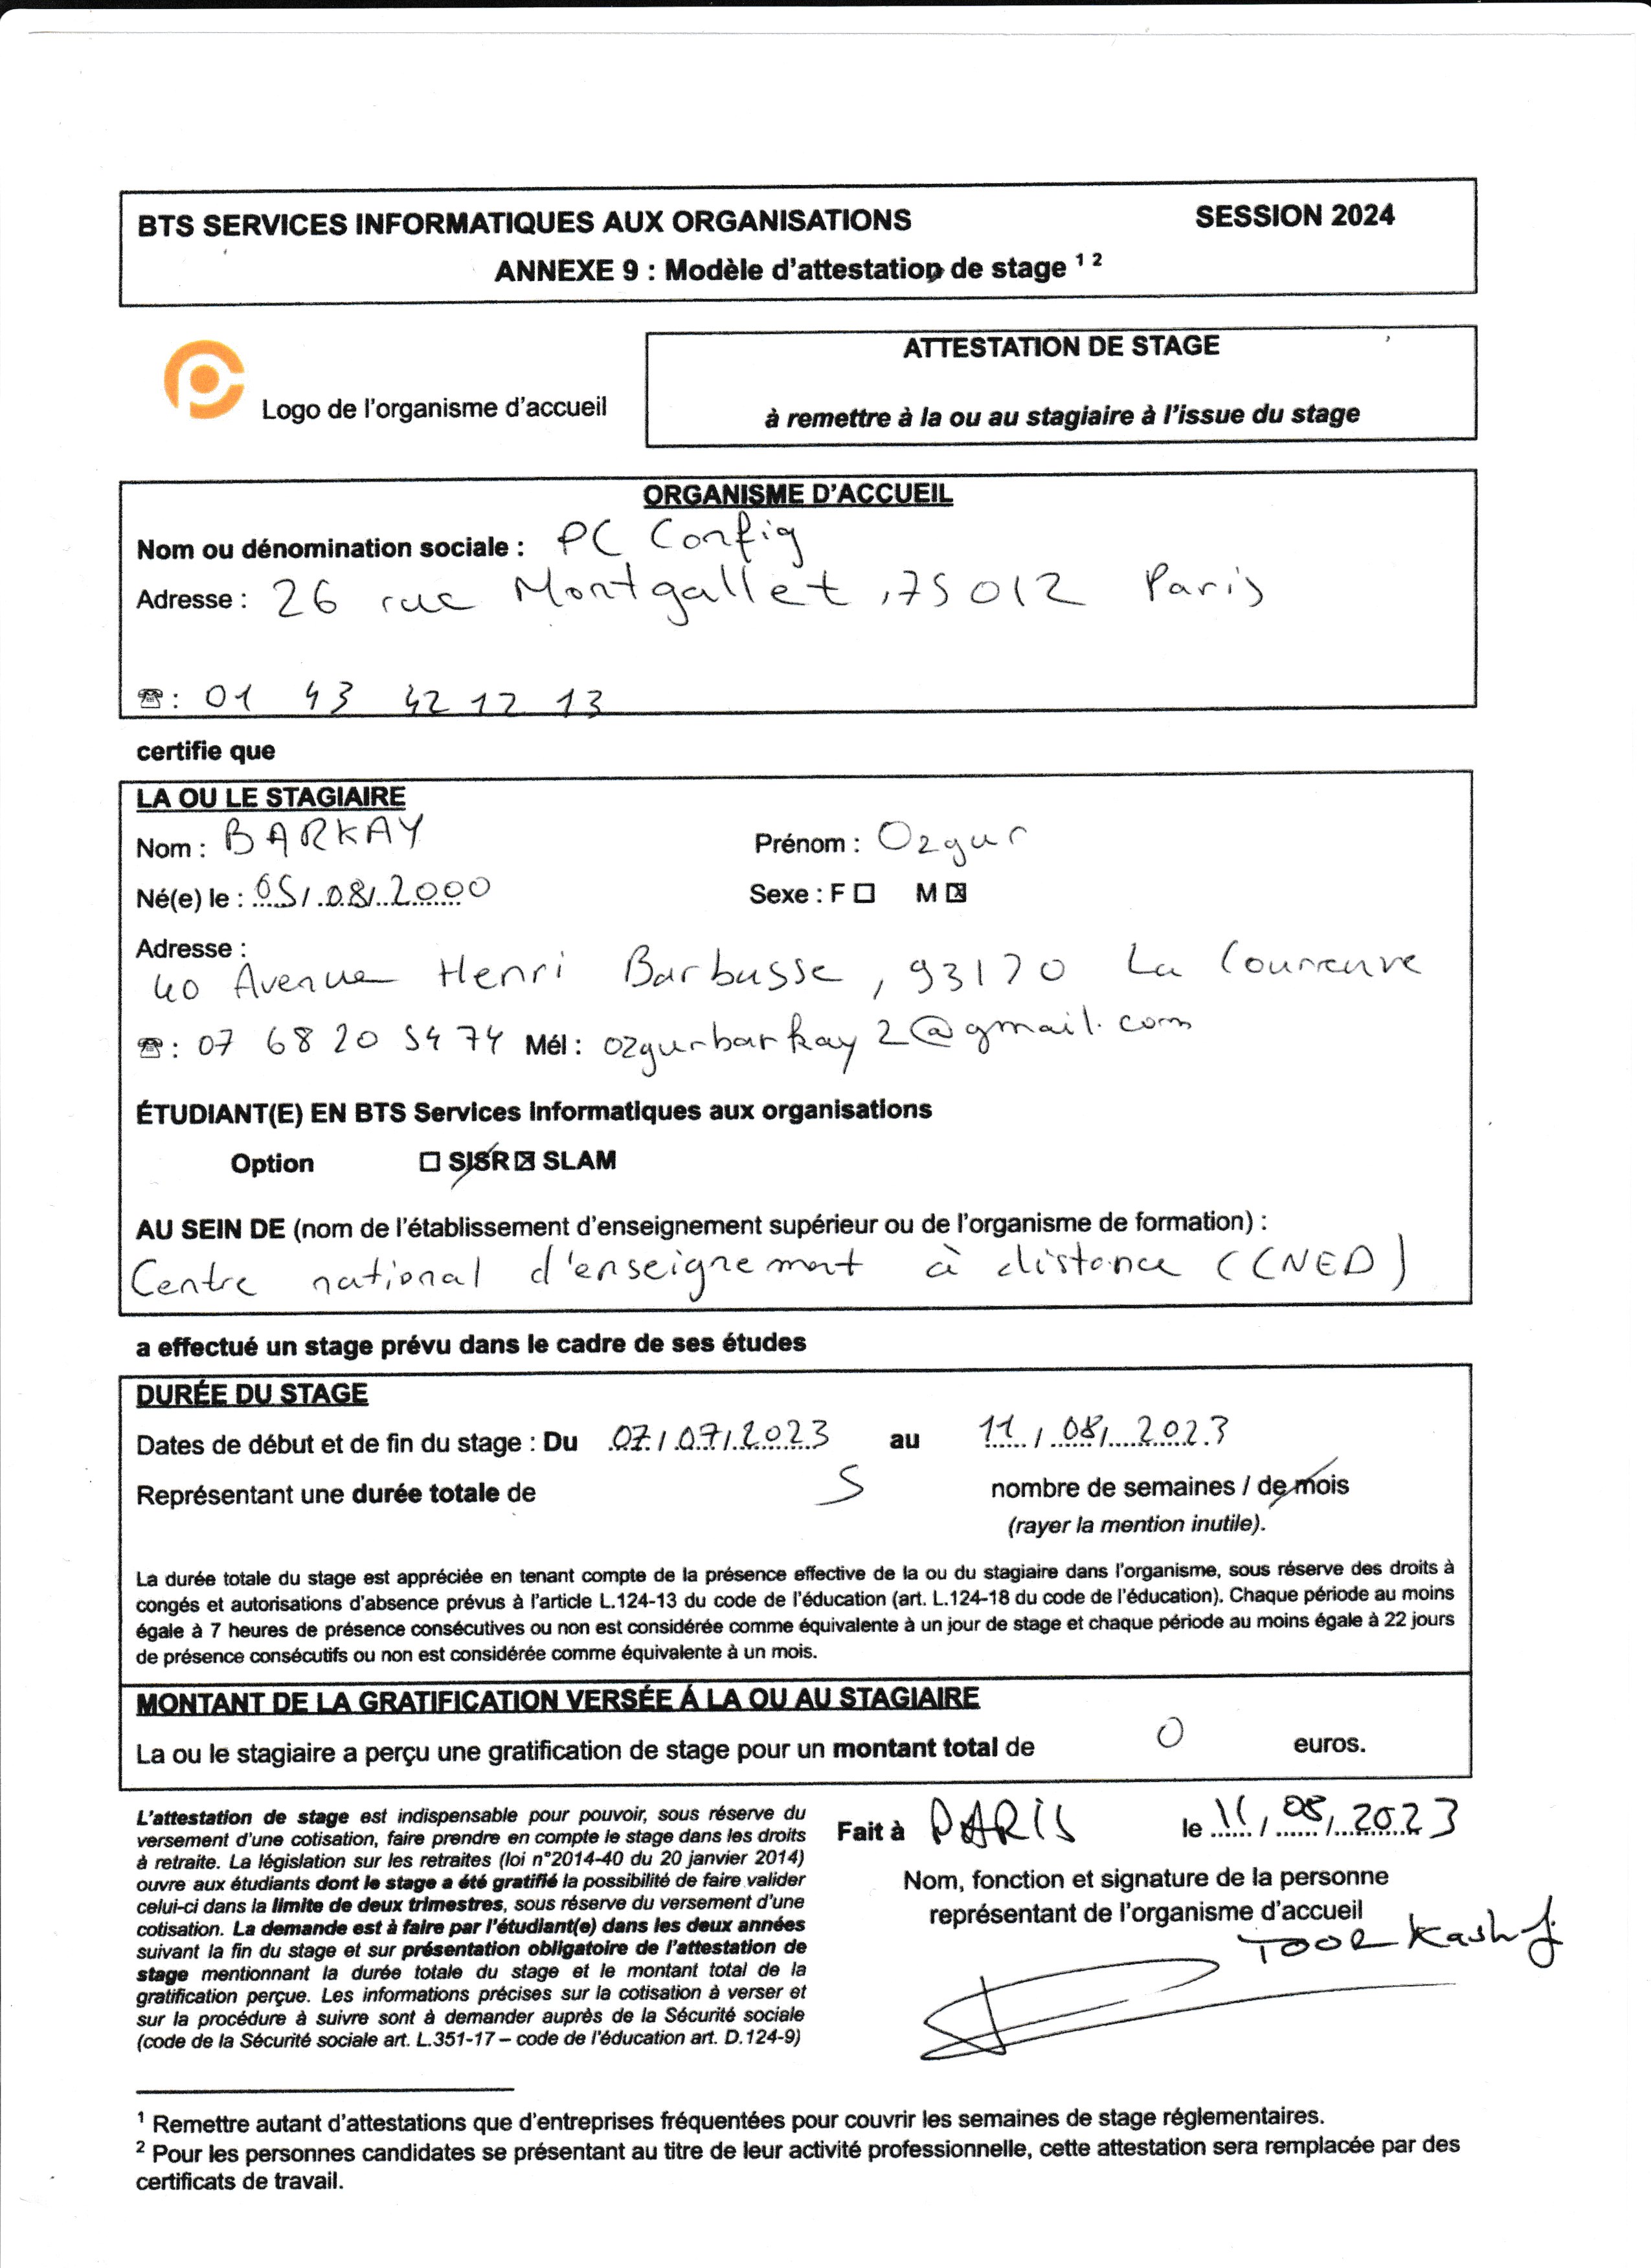 BTS SERVICES INFORMATIQUES AUX ORGANISATIONS SESSION 2024
ANNEXE 9 : Modèle d'attestation de stage 1 2
Logo de l'organisme d'accueil
ATTESTATION DE STAGE
à remettre à la ou au stagiaire à l'issue du stage
ORGANISME D'ACCUEIL
Nom ou dénomination sociale : PC Config
Adresse : 26 rue Montgallet, 75012 Paris
☎ : 01 43 42 12 13
certifie que
LA OU LE STAGIAIRE
Nom : BARKAY Prénom : Ozgur
Né(e) le : 05/08/2000 Sexe : F ☐ M ☒
Adresse :
40 Avenue Henri Barbusse, 93170 La Courneuve
☎ : 07 68 20 54 74 Mél : ozgurbarkay2@gmail.com
ÉTUDIANT(E) EN BTS Services informatiques aux organisations
Option ☐ SISR ☒ SLAM
AU SEIN DE (nom de l'établissement d'enseignement supérieur ou de l'organisme de formation) :
Centre national d'enseignement à distance (CNED)
a effectué un stage prévu dans le cadre de ses études
DURÉE DU STAGE
Dates de début et de fin du stage : Du 07/07/2023 au 11/08/2023
Représentant une durée totale de 5 nombre de semaines / de mois
(rayer la mention inutile).
La durée totale du stage est appréciée en tenant compte de la présence effective de la ou du stagiaire dans l'organisme, sous réserve des droits à
congés et autorisations d'absence prévus à l'article L.124-13 du code de l'éducation (art. L.124-18 du code de l'éducation). Chaque période au moins
égale à 7 heures de présence consécutives ou non est considérée comme équivalente à un jour de stage et chaque période au moins égale à 22 jours
de présence consécutifs ou non est considérée comme équivalente à un mois.
MONTANT DE LA GRATIFICATION VERSÉE Á LA OU AU STAGIAIRE
La ou le stagiaire a perçu une gratification de stage pour un montant total de 0 euros.
L'attestation de stage est indispensable pour pouvoir, sous réserve du
versement d'une cotisation, faire prendre en compte le stage dans les droits
à retraite. La législation sur les retraites (loi n°2014-40 du 20 janvier 2014)
ouvre aux étudiants dont le stage a été gratifié la possibilité de faire valider
celui-ci dans la limite de deux trimestres, sous réserve du versement d'une
cotisation. La demande est à faire par l'étudiant(e) dans les deux années
suivant la fin du stage et sur présentation obligatoire de l'attestation de
stage mentionnant la durée totale du stage et le montant total de la
gratification perçue. Les informations précises sur la cotisation à verser et
sur la procédure à suivre sont à demander auprès de la Sécurité sociale
(code de la Sécurité sociale art. L.351-17 – code de l'éducation art. D.124-9)
Fait à PARIS le 11/08/2023
Nom, fonction et signature de la personne
représentant de l'organisme d'accueil
TOOR Kashif
1 Remettre autant d'attestations que d'entreprises fréquentées pour couvrir les semaines de stage réglementaires.
2 Pour les personnes candidates se présentant au titre de leur activité professionnelle, cette attestation sera remplacée par des
certificats de travail.